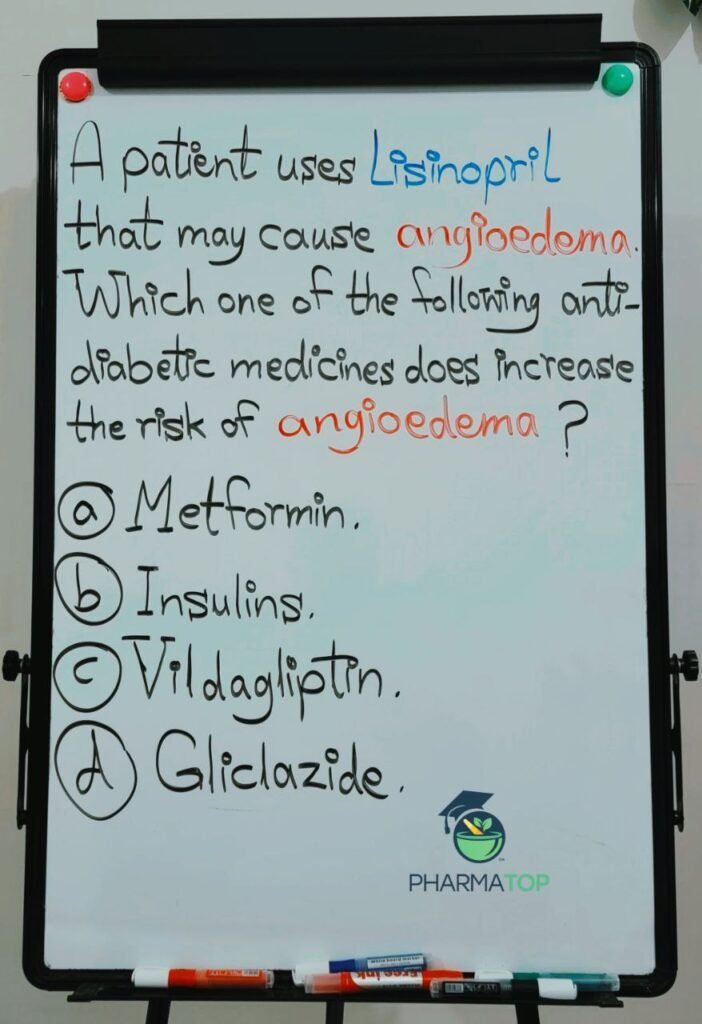 A patient uses Lisinopril
that may cause angioedema.
Which one of the following anti-
diabetic medicines does increase
the risk of angioedema ?
a Metformin.
b Insulins.
c Vildagliptin.
d Gliclazide.
PHARMATOP
Free ink